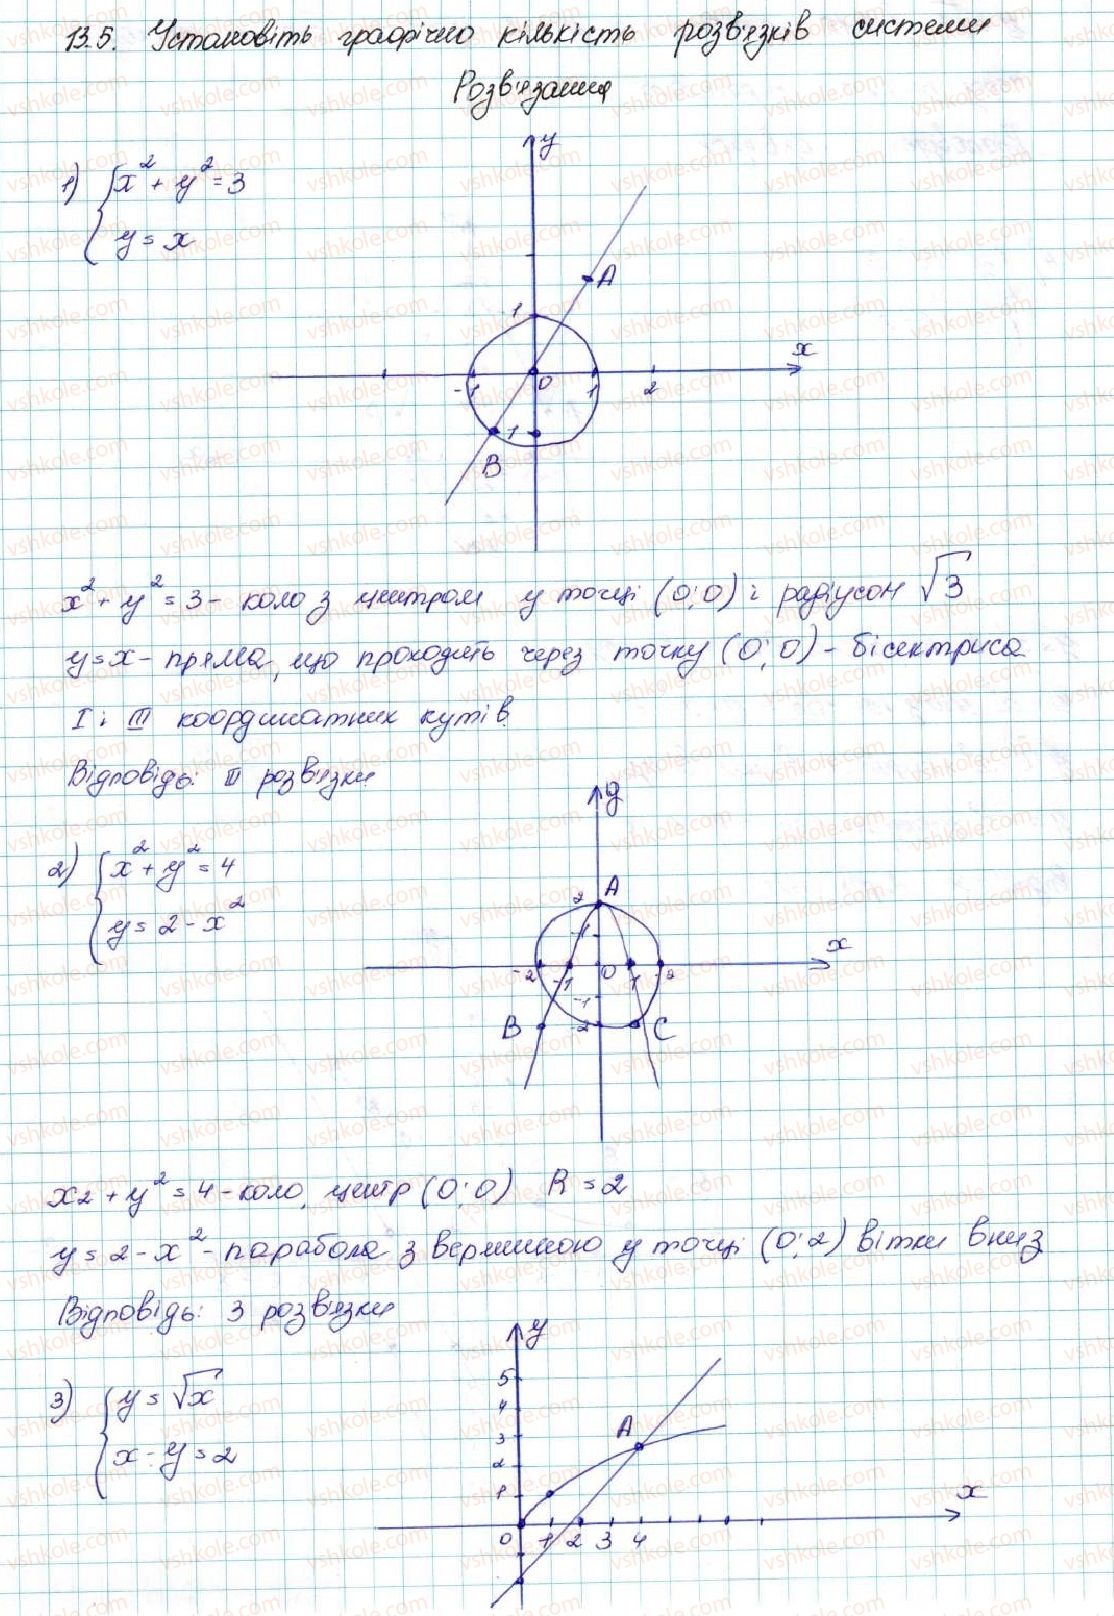 13.5. Установіть графічно кількість розв'язків системи
Розв'язання
1) { x² + y² = 3
y = x
y
A
1
x
-1
0
1
2
-1
B
x² + y² = 3 - коло з центром у точці (0;0) і радіусом √3
y = x - пряма, що проходить через точку (0;0) - бісектриса
I і III координатних кутів.
Відповідь: II розв'язки
2) { x² + y² = 4
y = 2 - x²
y
2
A
1
x
-2
-1
0
1
2
-1
B
-2
C
x2 + y² = 4 - коло, центр (0;0) R = 2
y = 2 - x² - парабола з вершиною у точці (0;2) вітки вниз
Відповідь: 3 розв'язки
3) { y = √x
x - y = 2
y
5
4
3
A
2
1
x
0
1 2 3 4
vshkole.com